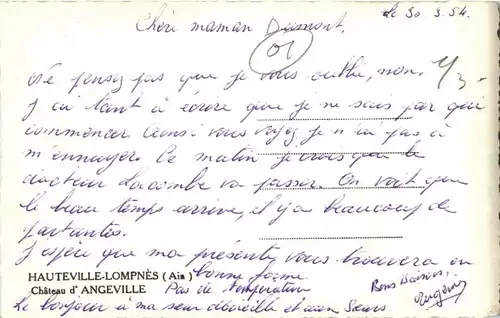 le 30. 3. 54.
Chère maman Dumont,
01
Ne pensez pas que je vous oublie, non.
J'ai tant à écrire que je ne sais par qui
commencer. Ainsi vous voyez, je n'ai pas à
m'ennuyer. Ce matin je crois que le
docteur Lacombe va passer. On voit que
le beau temps arrive, et y a beaucoup de
partantes.
J'espère que ma présente vous trouvera en
bonne forme
HAUTEVILLE-LOMPNÈS (Ain)
Château d'ANGEVILLE
Pas de température
Bons Baisers,
Le bonjour à ma sœur et aux Sœurs.